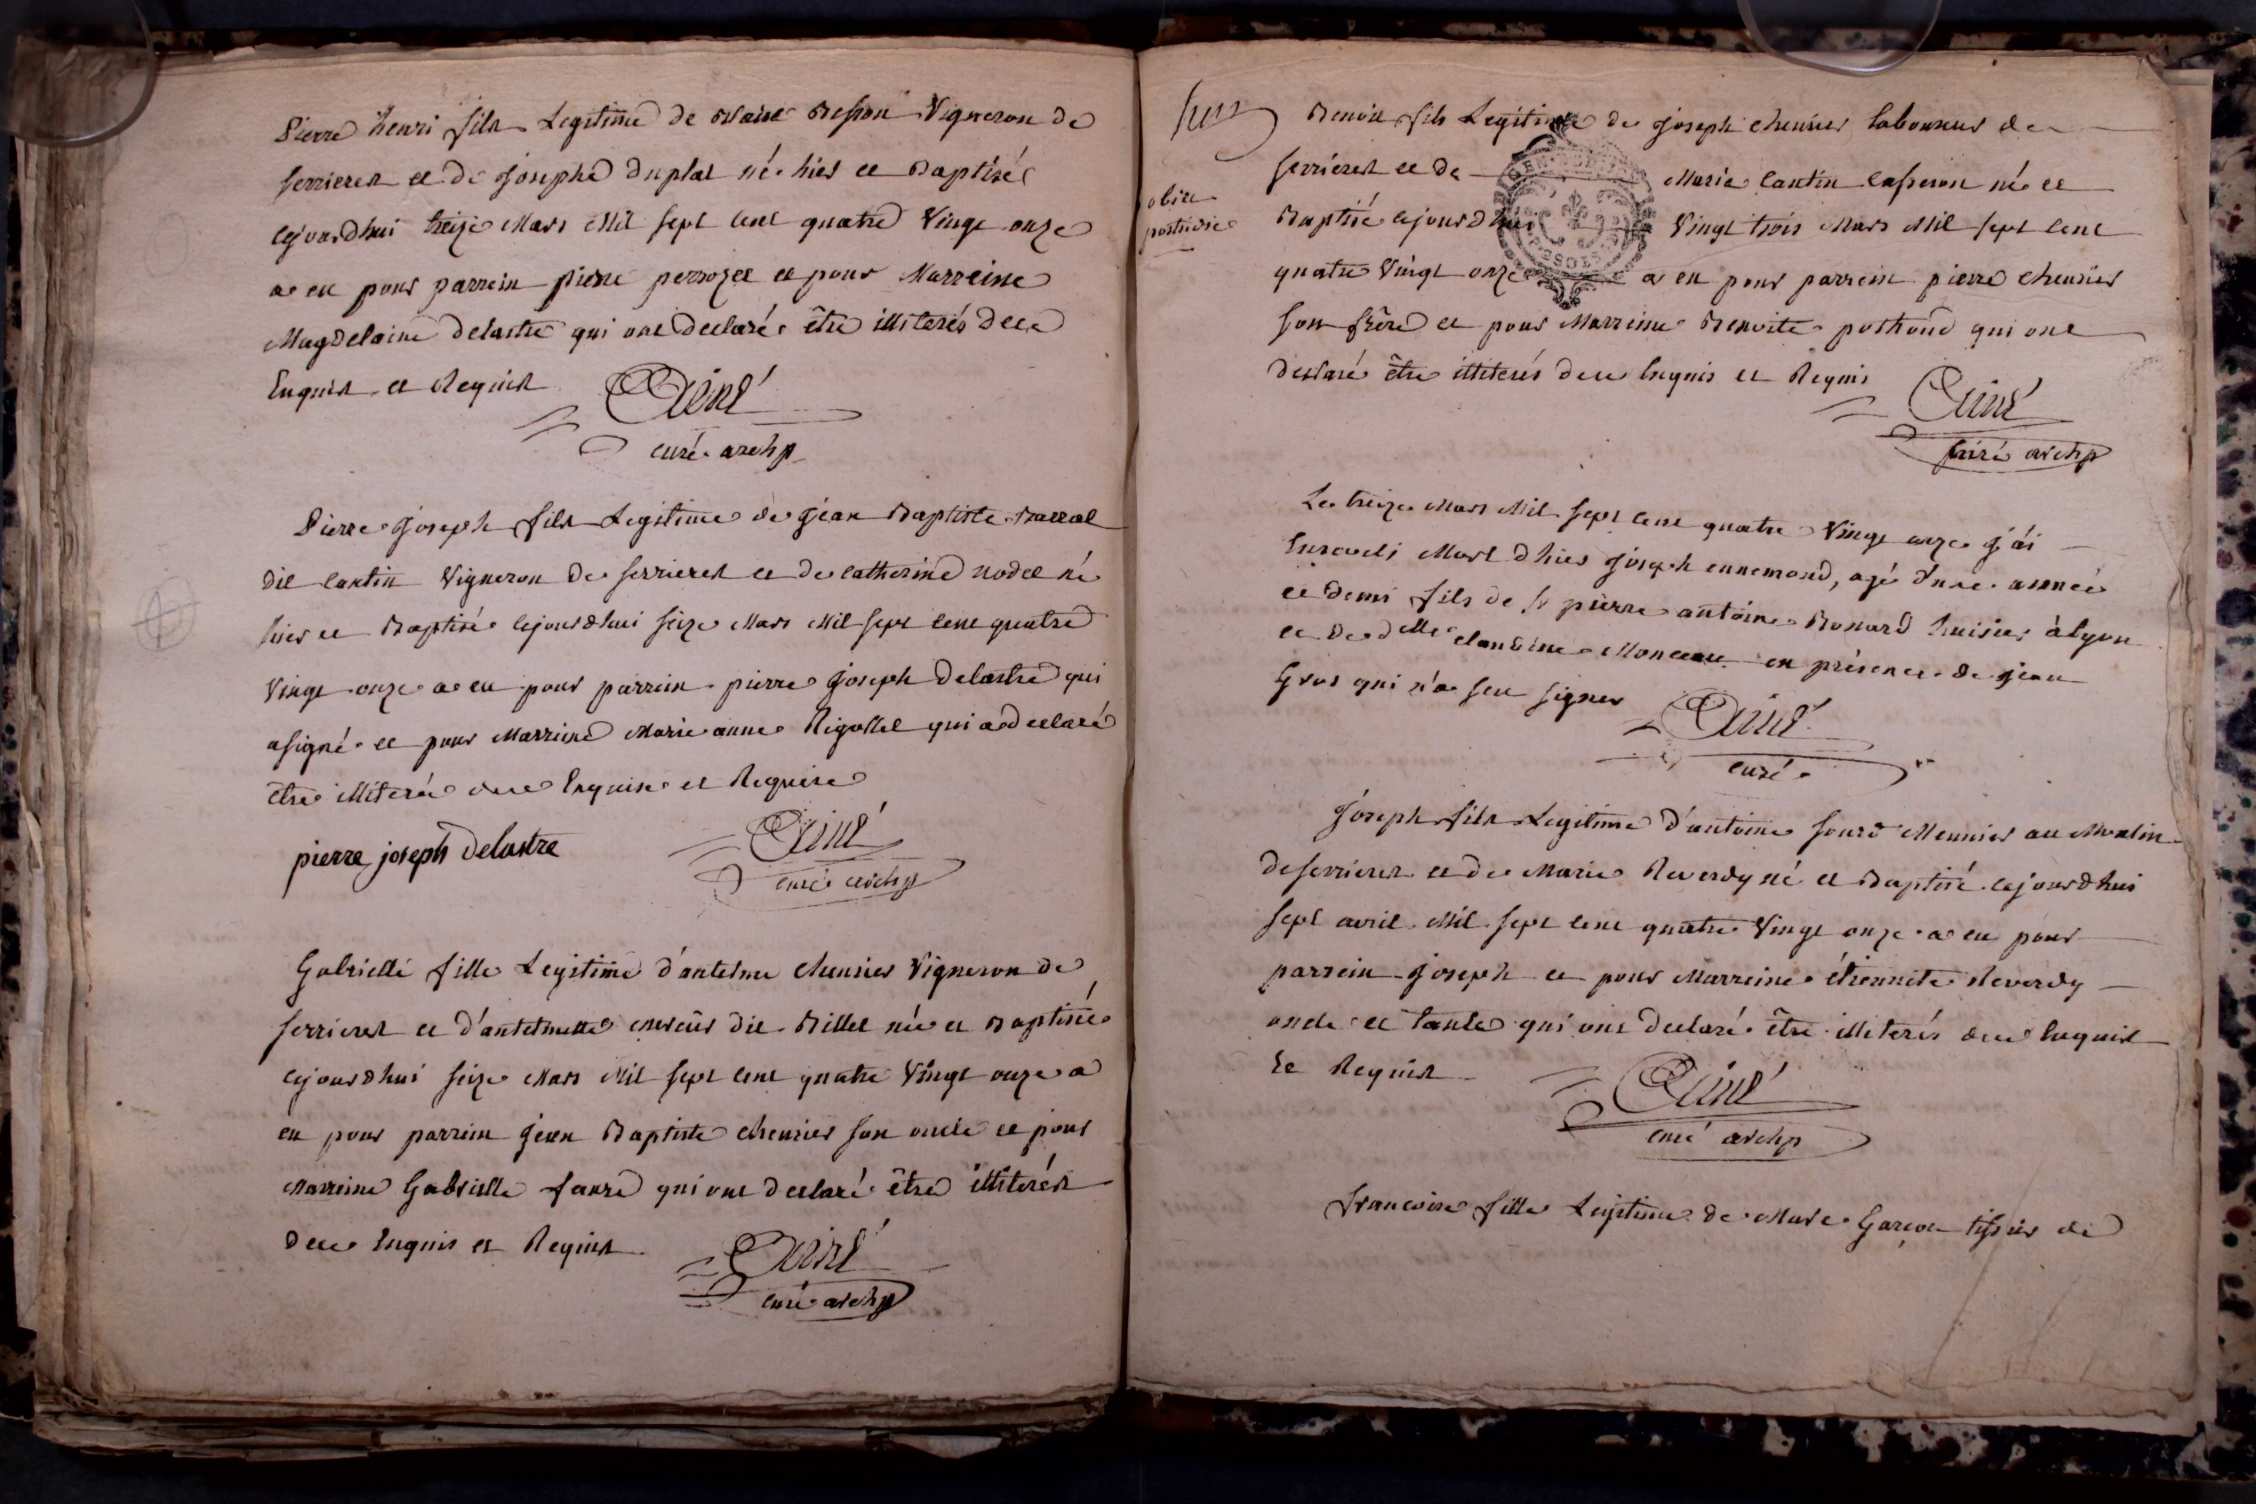 Pierre henri fils Legitime de Blaise Besson Vigneron de
serrieres et de Josephe duplat né hier et Baptisé
cejourdhui treize Mars Mil sept cent quatre Vingt onze
a eu pour parrein pierre perrozet et pour Marreine
Magdelaine delastre qui ont declaré être illiterés de ce
Enquis et Requis
Aimé
curé archp
Pierre joseph fils Legitime de jean Baptiste
dit cantin Vigneron de serrieres et de catherine nodet né
hier et Baptisé cejourdhui seize Mars Mil sept cent quatre
Vingt onze a eu pour parrein pierre joseph delastre qui
a signé et pour Marreine Marie anne Rigollet qui a declaré
être illiterée de ce Enquise et Requise
pierre joseph delastre
Aimé
curé archp
Gabrielle fille Legitime d'antelme cheusier Vigneron de
serrieres et d'antelmette dit Billet née et Baptisée
cejourdhui seize Mars Mil sept cent quatre Vingt onze a
eu pour parrein jean Baptiste cheusier son oncle et pour
Marreine Gabrielle faure qui ont declaré être illiterés
de ce Enquis et Requis
Aimé
curé archp
obiit
postridie
Benoit fils Legitime de joseph cheusier laboureur de
serrieres et de Marie cantin casseron né et
Baptisé cejourdhui Vingt trois Mars Mil sept cent
quatre Vingt onze a eu pour parrein pierre cheusier
son frère et pour Marreine Benoite qui ont
declaré être illiterés de ce Enquis et Requis
Aimé
curé archp
Le treize Mars Mil sept cent quatre Vingt onze j'ai
Enseveli Mort d'hier joseph ennemond, agé d'une année
et demi fils de sr pierre antoine Bonard huisier à lyon
et de delle claudine Monceau en présence de jean
Gros qui n'a seu signer
Aimé
curé
joseph fils Legitime d'antoine sourd Meunier au Moulin
de serrieres et de Marie Reverdy né et Baptisé cejourdhui
sept avril Mil sept cent quatre Vingt onze a eu pour
parrein joseph et pour Marreine étiennete Reverdy
oncle et tante qui ont declaré être illiterés de ce Enquis
Et Requis
Aimé
curé archp
francoise fille Legitime de Marc Garçon tissier de